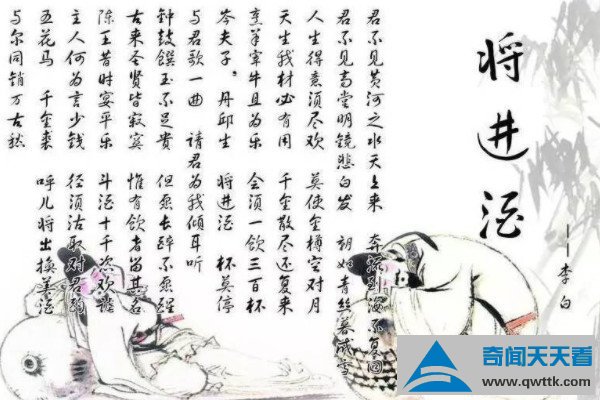 将进酒
——李白
君不见黄河之水天上来 奔流到海不复回
君不见高堂明镜悲白发 朝如青丝暮成雪
人生得意须尽欢 莫使金樽空对月
天生我材必有用 千金散尽还复来
烹羊宰牛且为乐 会须一饮三百杯
岑夫子，丹邱生 将进酒 杯莫停
与君歌一曲 请君为我倾耳听
钟鼓馔玉不足贵 但愿长醉不愿醒
古来圣贤皆寂寞 惟有饮者留其名
陈王昔时宴平乐 斗酒十千恣欢谑
主人何为言少钱 径须沽取对君酌
五花马 千金裘 呼儿将出换美酒
与尔同销万古愁
奇闻天天看
www.qwttk.com